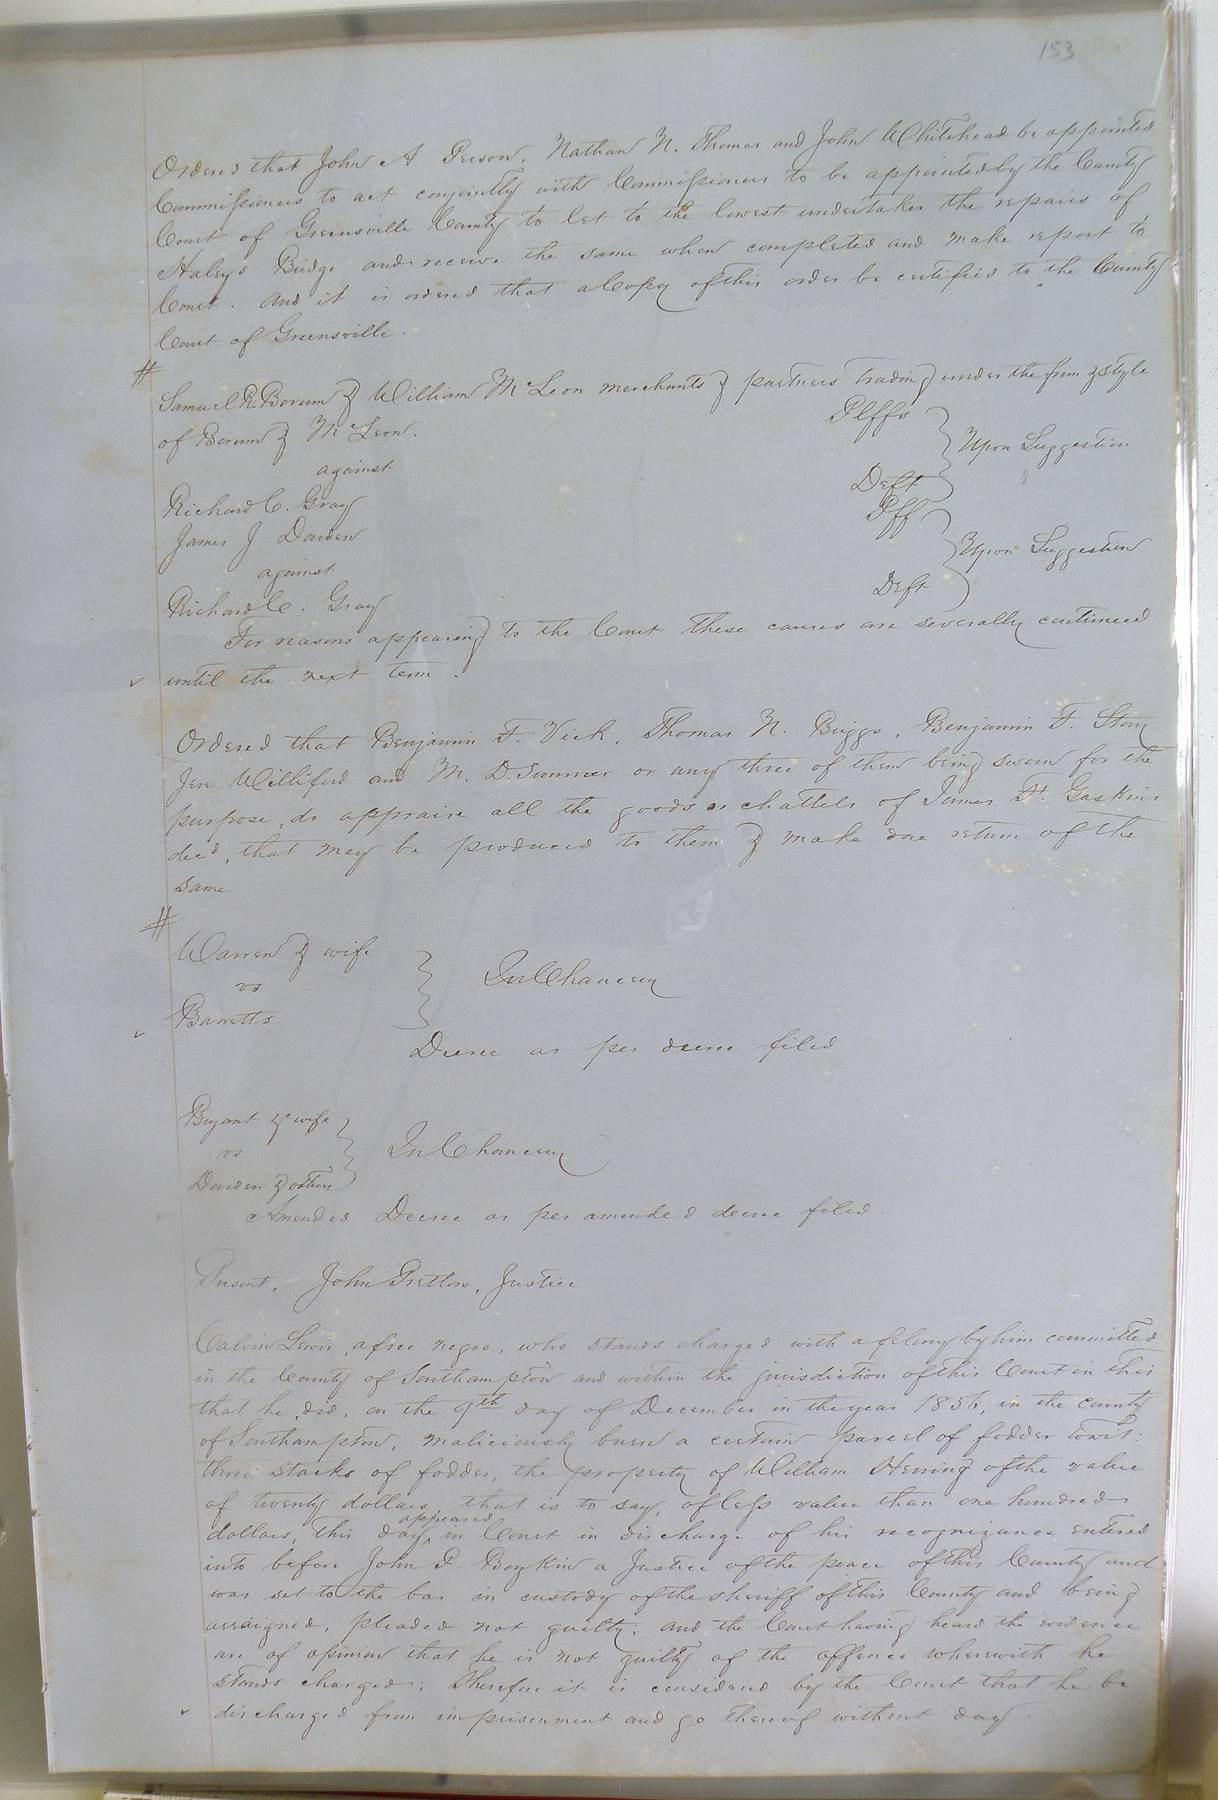 153
Ordered that John A. Person, Nathan N. Thomas and John Whitehead be appointed
Commissioners to act conjointly with Commissioners to be appointed by the County
Court of Greensville County to let to the lowest undertaker the repairs of
Haleys Bridge and receive the same when completed and make report to
Court. And it is ordered that a Copy of this order be certified to the County
Court of Greensville.
#
Samuel R. Borum & William McLeon merchants & partners trading under the firm & style
of Borum & McLeon. Plffs
against Upon Suggestion
Richard C. Gray Deft
James J Darden Plff
against Upon Suggestion
Richard C. Gray Deft
For reasons appearing to the Court these causes are severally continued
until the next term.
Ordered that Benjamin F. Vick, Thomas N. Briggs, Benjamin F. Story
Jere Williford and M. D. Sumner or any three of them being sworn for the
purpose, do appraise all the goods or chattels of James F. Gaskins
decd, that may be produced to them & make due return of the
same
#
Warren & wife
vs In Chancery
Barretts
Decree as per decree filed
Bryant & wife
vs In Chancery
Darden & others
Amended Decree as per amended decree filed.
Present, John Pretlow, Justice
Calvin Lewis, a free negro, who stands charged with a felony by him committed
in the County of Southampton and within the jurisdiction of this Court in this
that he did, on the 9th day of December in the year 1856, in the county
of Southampton, maliciously burn a certain parcel of fodder towit:
three stacks of fodder, the property of William Herring of the value
of twenty dollars, that is to say, of less value than one hundred
dollars, this day appeared in Court in discharge of his recognizance entered
into before John P. Boykin a Justice of the peace of this County and
was set to the bar in custody of the sheriff of this County and being
arraigned, pleaded not guilty; and the Court having heard the evidence
are of opinion that he is not guilty of the offence wherewith he
stands charged; Therefore it is considered by the Court that he be
discharged from imprisonment and go thereof without day.